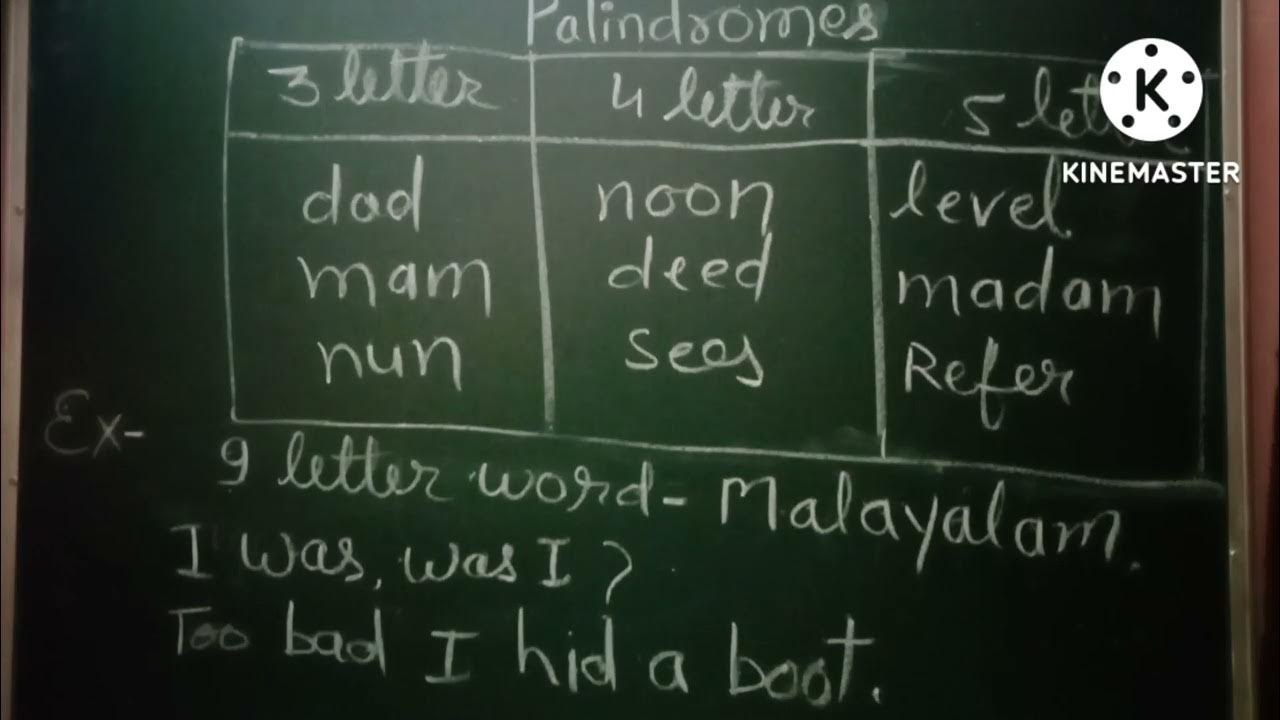 Palindromes
3 letter 4 letter 5 lett
K
KINEMASTER
dad noon level
mam deed madam
nun sees Refer
Ex-
9 letter word- Malayalam.
I was, was I ?
Too bad I hid a boot.